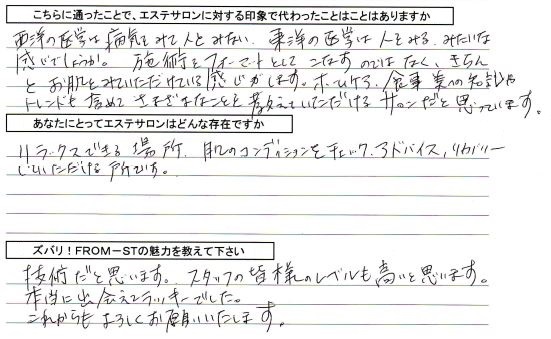 こちらに通ったことで、エステサロンに対する印象で代わったことはことはありますか
西洋の医学は病気をみて人をみない、東洋の医学は人をみる、みたいな
感じでしょうか。施術をフォーマットとしてこなすのではなく、きちん
とお肌をみていただけている感じがします。ホームケア、食事、美への知識や
トレンドも含めてさまざまなことを教えていただけるサロンだと思っています。
あなたにとってエステサロンはどんな存在ですか
リラックスできる場所、肌のコンディションをチェック、アドバイス、リカバリー
していただける所です。
ズバリ！FROM－STの魅力を教えて下さい
技術だと思います。スタッフの皆様のレベルも高いと思います。
本当に出会えてラッキーでした。
これからもよろしくお願いいたします。